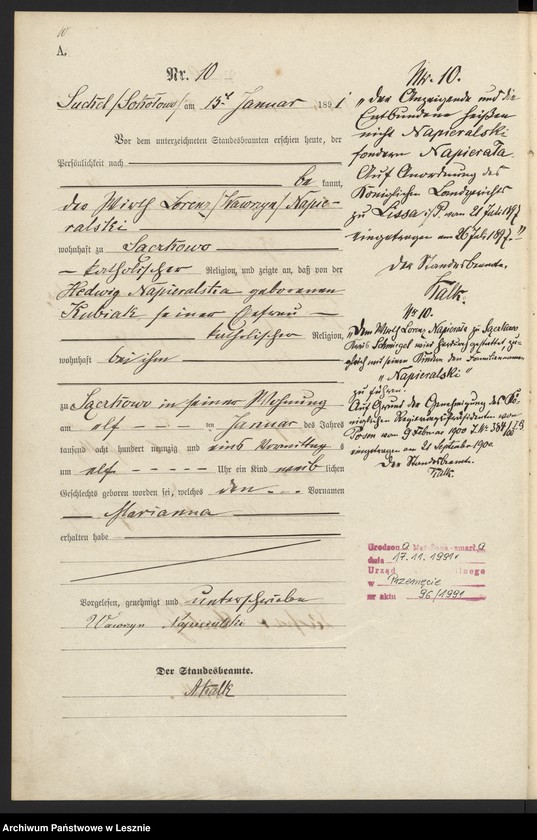 A.
Nr. 10
am 15. Januar 1891
Vor dem unterzeichneten Standesbeamten erschien heute, der
Persönlichkeit nach
be kannt,
der Wirth Lorenz /Wawrzyn/ Napie-
ralski
wohnhaft zu Sączkowo
katholischer Religion, und zeigte an, daß von der
Hedwig Napieralska geborenen
Kubiak seiner Ehefrau
katholischer Religion,
wohnhaft bei ihm
zu Sączkowo in seiner Wohnung
am elf ten Januar des Jahres
tausend acht hundert neunzig und eins Vormittags
um elf Uhr ein Kind weib lichen
Geschlechts geboren worden sei, welches den Vornamen
Marianna
erhalten habe
Vorgelesen, genehmigt und unterschrieben
Wawrzyn Napieralski
Der Standesbeamte.
Nr. 10.
"Der Anzeigende und die
Entbundene heißen
nicht Napieralski
sondern Napierała.
Auf Anordnung des
Königlichen Landgerichts
zu Lissa i/P. vom 21 Juli 1897
eingetragen am 26 Juli 1897."
Der Standesbeamte.
No 10.
"Dem Wirth Lorenz Napierała zu Sączkowo
Kreis Schmiegel wird hierdurch gestattet, zu-
gleich mit seinen Kindern den Familiennamen
"Napieralski"
zu führen.
Auf Grund der Genehmigung des Kö-
niglichen Regierungs-Präsidenten von
Posen vom 9 Februar 1900
eingetragen am 21 September 1900.
Der Standesbeamte.
dnia 17.11.1991
Urząd
w Przemęcie
nr aktu 96/1991
Archiwum Państwowe w Lesznie